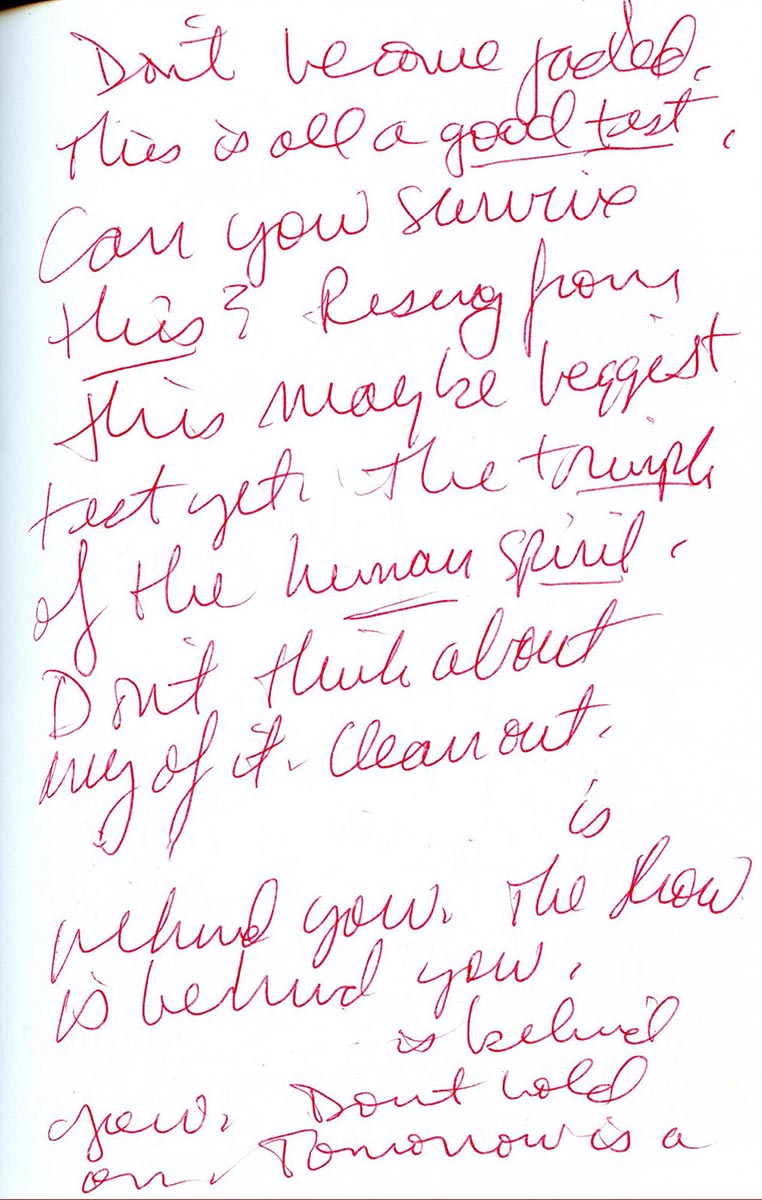 Don't become jaded.
This is all a good test.
Can you survive
this? Rising from
this maybe biggest
test yet. The triumph
of the human spirit.
Don't think about
any of it. Clean out.
is
behind you. The show
is behind you.
is behind
you. Dont hold
on. Tomorrow is a